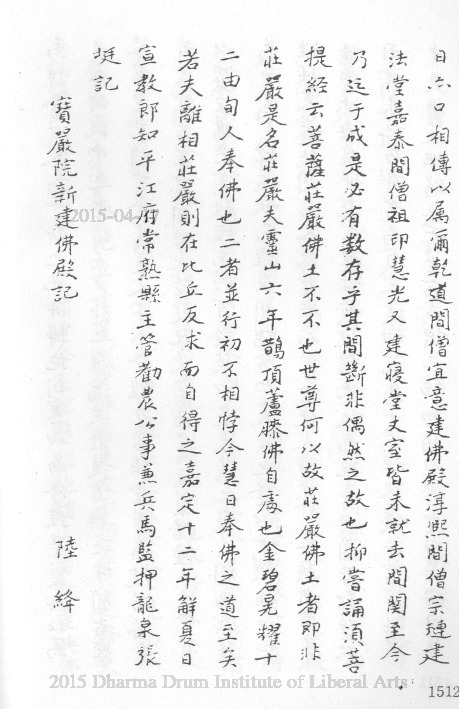 日六口相傳以厲爾乾道間僧宜意建佛殿淳熙間僧宗璉建
法堂嘉泰間僧祖印慧光又建寢堂丈室皆未就去間關至今
乃迄于成是必有数存乎其間斷非偶然之故也抑嘗誦須菩
提經云菩薩莊嚴佛土不不也世尊何以故莊嚴佛土者即非
莊嚴是名莊嚴夫靈山六年鵲頂蘆膝佛自處也金碧晃耀十
二由旬人奉佛也二者並行初不相悖今慧日奉佛之道至矣
若夫離相莊嚴則在比丘反求而自得之嘉定十二年解夏日
宣教郎知平江府常熟縣主管勸農公事兼兵馬監押龍泉張
記
寶嚴院新建佛殿記 陸絳
2015-04-17
2015 Dharma Drum Institute of Liberal Arts
1512